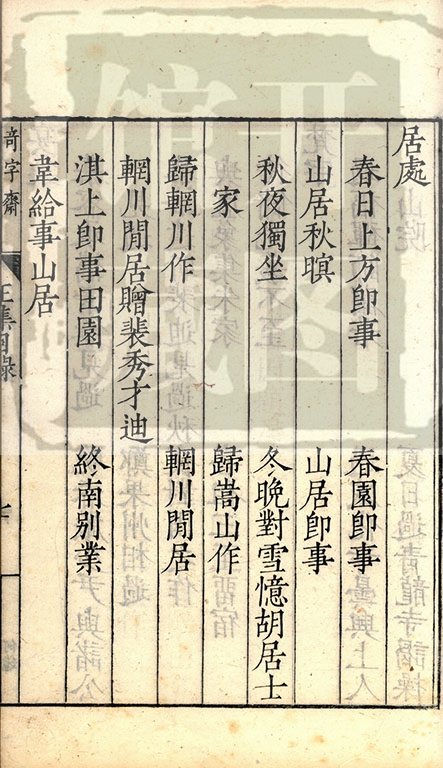 居處
春日上方卽事 春園卽事
山居秋暝 山居卽事
秋夜獨坐 冬晚對雪憶胡居士
家 歸嵩山作
歸輞川作 輞川閒居
輞川閒居贈裴秀才迪
淇上卽事田園 終南別業
韋給事山居
奇字齋
王集目錄